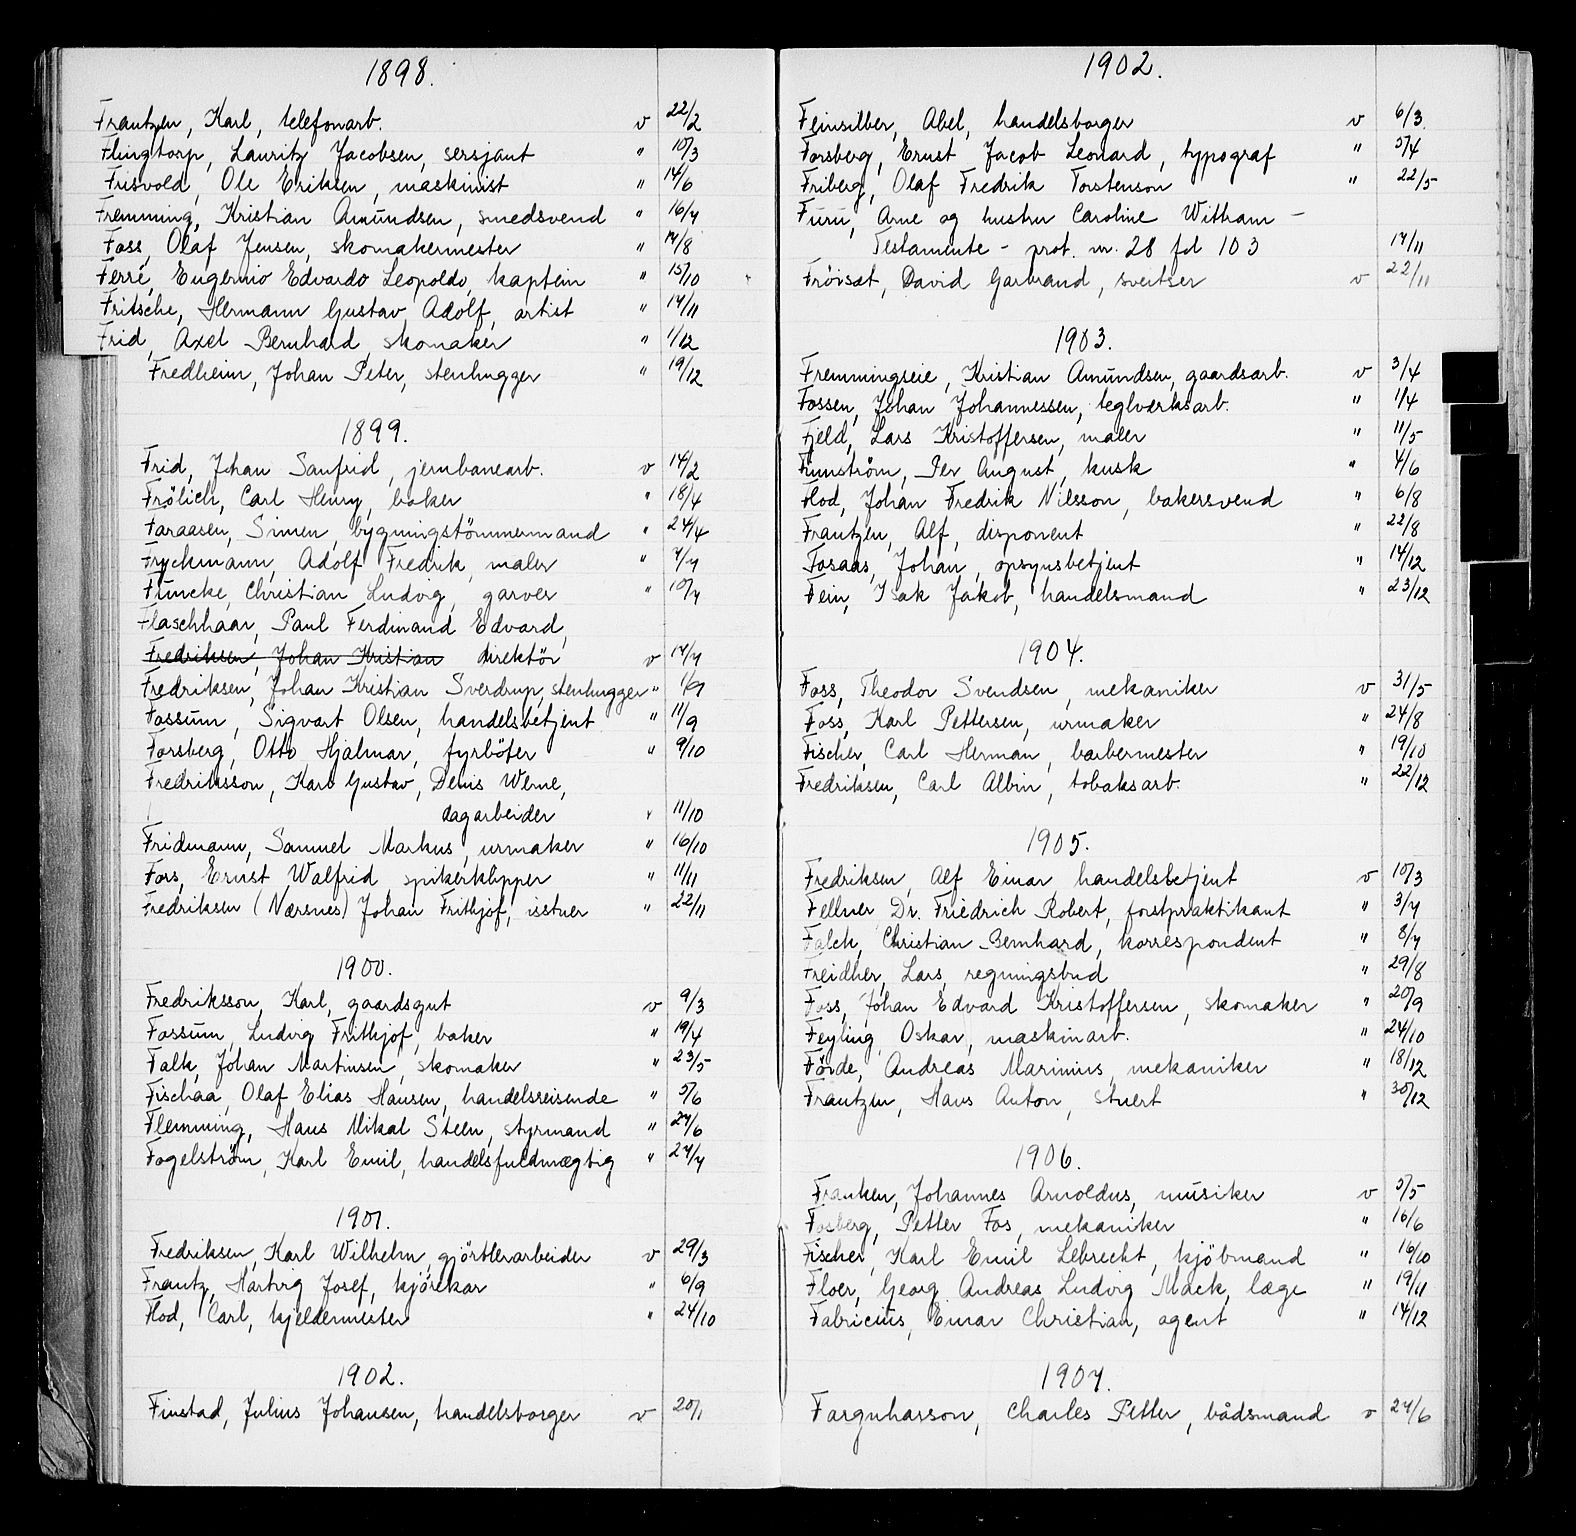 1898.
Frantzen, Karl, telefonarb. v 22/2
Flingtorp, Lauritz Jacobsen, sersjant " 10/3
Frisvold, Ole Eriksen, maskinist " 14/6
Fremming, Kristian Amundsen, smedsvend " 16/7
Foss, Olaf Jensen, skomakermester " 17/8
Ferré, Eugenio Edvardo Leopoldo, kaptein " 15/10
Fritsche, Hermann Gustav Adolf, artist " 17/11
Frid, Axel Bernhard, skomaker " 1/12
Fredheim, Johan Peter, stenhugger " 19/12
1899.
Frid, Johan Sanfrid, jernbanearb. v 14/2
Frölich, Carl Henry, baker " 18/4
Faraasen, Simen, bygningstömmermand " 24/4
Fryckmann, Adolf Fredrik, maler " 7/7
Funcke, Christian Ludvig, garver " 10/7
Flaschhaar, Paul Ferdinand Edvard,
Fredriksen, Johan Kristian direktör v 17/7
Fredriksen, Johan Kristian Sverdrup, stenhugger " 1/9
Fossum, Sigvart Olsen, handelsbetjent " 11/9
Forsberg, Otto Hjalmar, fyrböter " 9/10
Fredriksson, Karl Gustav, Denis Werne,
dagarbeider " 11/10
Fridmann, Samuel Markus, urmaker " 16/10
Fors, Ernst Walfrid, spikerklipper " 11/11
Fredriksen (Nærsnes) Johan Frithjof, isstuer " 22/11
1900.
Fredriksson, Karl, gaardsgut v 9/3
Fossum, Ludvig Frithjof, baker " 19/4
Falk, Johan Martinsen, skomaker " 23/5
Fischaa, Olaf Elias Hansen, handelsreisende " 5/6
Flemming, Hans Mikal Steen, styrmand " 27/6
Fogelström, Karl Emil, handelsfuldmægtig " 27/7
1901.
Fredriksen, Karl Wilhelm, gjörtlerarbeider v 29/3
Frantz, Hartvig Josef, kjörekar " 6/9
Flod, Carl, kjeldermester " 24/10
1902.
Finstad, Julius Johansen, handelsborger v 20/1
1902.
Feinsilber, Abel, handelsborger v 6/3
Forsberg, Ernst Jacob Leonard, typograf " 5/4
Friberg, Olaf Fredrik Torstenson " 22/5
Furu, Arne og hustru Caroline Witham –
Testamente – prot. nr. 28 fol 103 17/11
Fröisat, David Garbrand, sveitser v 22/11
1903.
Fremmingseie, Kristian Amundsen, gaardsarb. v 3/4
Fossen, Johan Johannessen, teglverksarb. " 1/4
Fjeld, Lars Kristoffersen, maler " 11/5
Finnström, Per August, kusk " 4/6
Flod, Johan Fredrik Nilsson, bakersvend " 6/8
Frantzen, Alf, disponent " 22/8
Fosaas, Johan, opsynsbetjent " 14/12
Fein, Isak Jakob, handelsmand " 23/12
1904.
Foss, Theodor Svendsen, mekaniker v 31/5
Foss, Karl Pettersen, urmaker " 24/8
Fischer, Carl Herman, barbermester " 19/10
Fredriksen, Carl Albin, tobaksarb. " 22/12
1905.
Fredriksen, Alf Einar, handelsbetjent v 10/3
Fellner Dr. Friedrich Robert, forstpraktikant " 3/7
Falck, Christian Bernhard, korrespondent " 8/7
Freidher, Lars, regningsbud " 29/8
Foss, Johan Edvard Kristoffersen, skomaker " 20/9
Feyling, Oskar, maskinarb. " 24/10
Förde, Andreas Marinius, mekaniker " 18/12
Frantzen, Hans Anton, stuert " 30/12
1906.
Franken, Johannes Arnoldus, musiker v 5/5
Fosberg, Petter Fos, mekaniker " 16/6
Fischer, Karl Emil Lebrecht, kjöbmand " 16/10
Floer, Georg Andreas Ludvig Mack, læge " 19/11
Fabricius, Einar Christian, agent " 14/12
1907.
Farquharsson, Charles Petter, bådsmand v 27/6